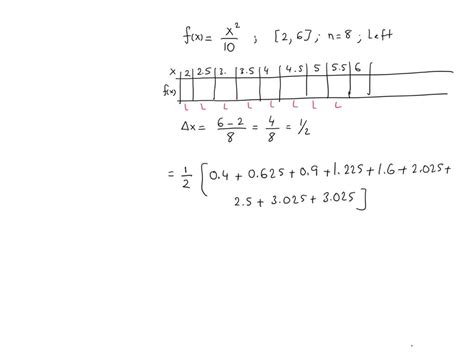 f(x) = x²/10 ; [2, 6] ; n = 8 ; Left
x | 2 | 2.5 | 3. | 3.5 | 4 | 4.5 | 5 | 5.5 | 6
f(x)
L L L L L L L L
Δx = 6-2/8 = 4/8 = 1/2
= 1/2 [0.4 + 0.625 + 0.9 + 1.225 + 1.6 + 2.025 +
2.5 + 3.025 + 3.025]